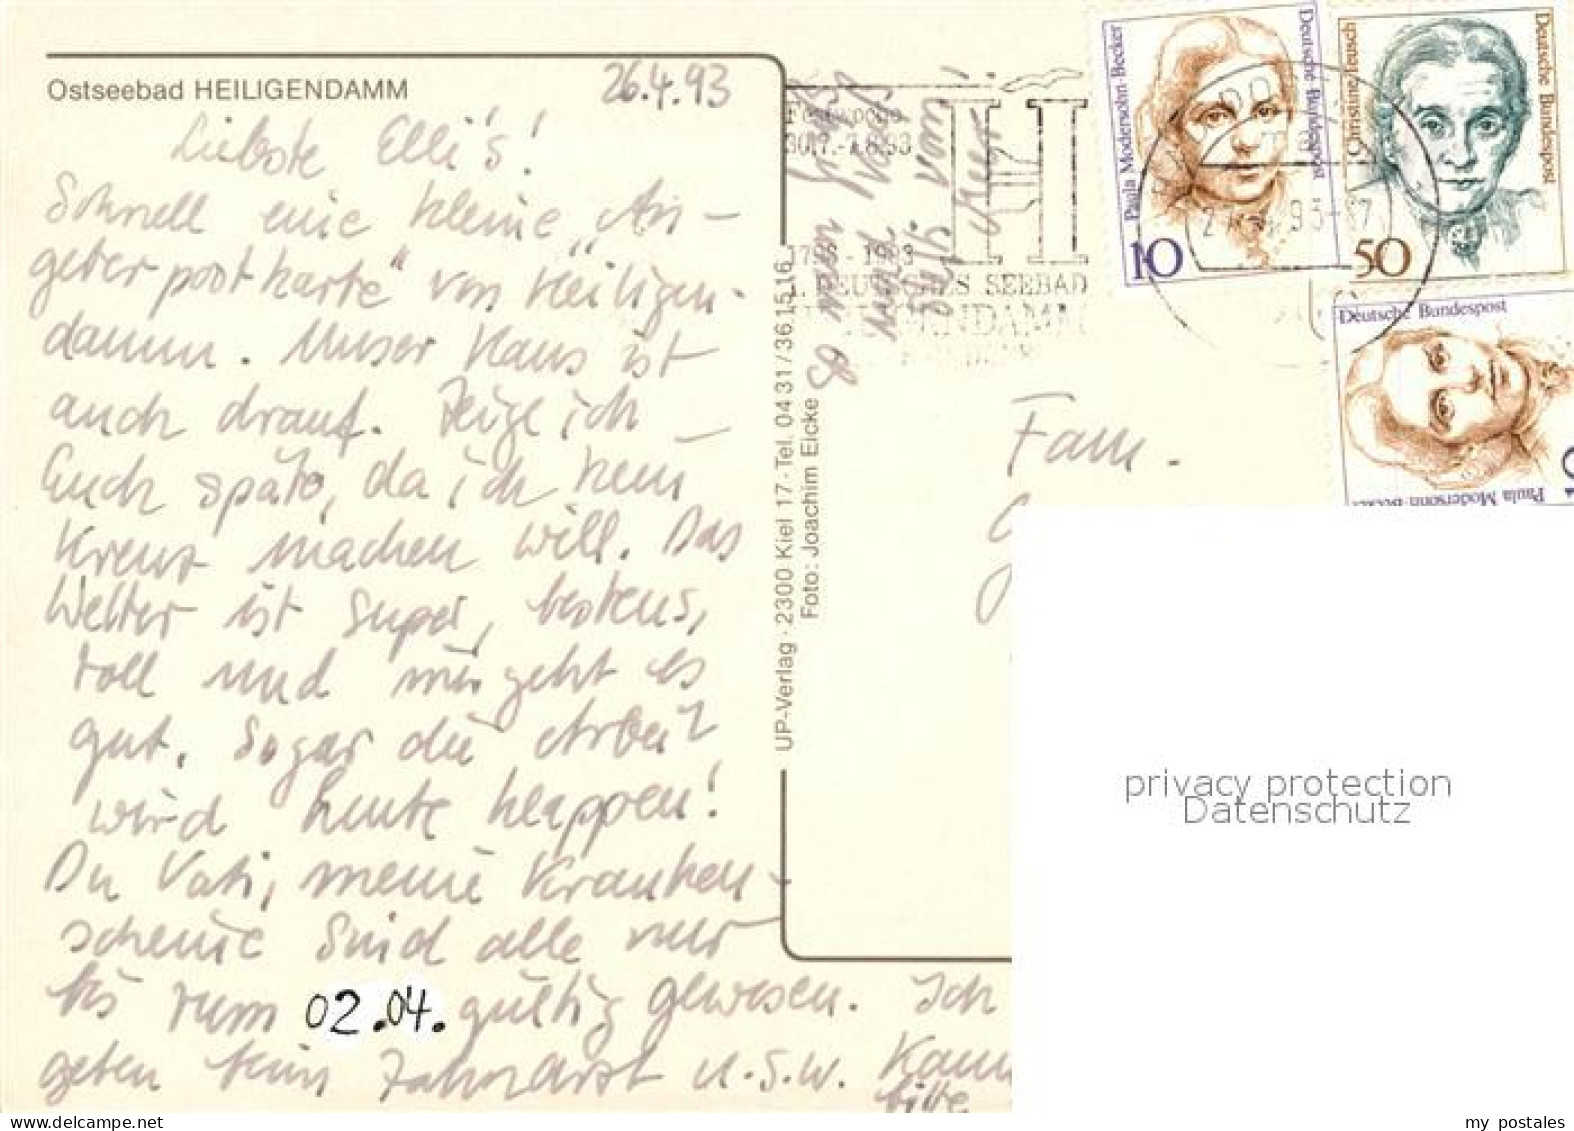 Ostseebad HEILIGENDAMM
26.4.93
Liebste Elli's!
Schnell eine kleine „An-
geberpostkarte" von Heiligen-
damm. Unser Haus ist
auch drauf. Zeige ich
Euch später, da ich kein
Kreuz machen will. Das
Wetter ist super, bestens,
toll und mir geht es
gut. Sogar die Arbeit
wird heute klappen!
Du Vati, meine Kranken-
scheine sind alle nur
bis zum 02.04. gültig gewesen. Ich
geben kein Zahnarzt u.s.w. Kann
bitte
UP-Verlag · 2300 Kiel 17 · Tel. 04 31 / 36 15 16
Foto: Joachim Eicke
30.7.-7.8.93
1793 - 1993
1. DEUTSCHES SEEBAD
HEILIGENDAMM
vom
Meer
Deutsche Bundespost
Paula Modersohn-Becker
10
Deutsche Bundespost
Christine Teusch
50
Deutsche Bundespost
Paula Modersohn-Becker
Fam.
privacy protection
Datenschutz
my postales